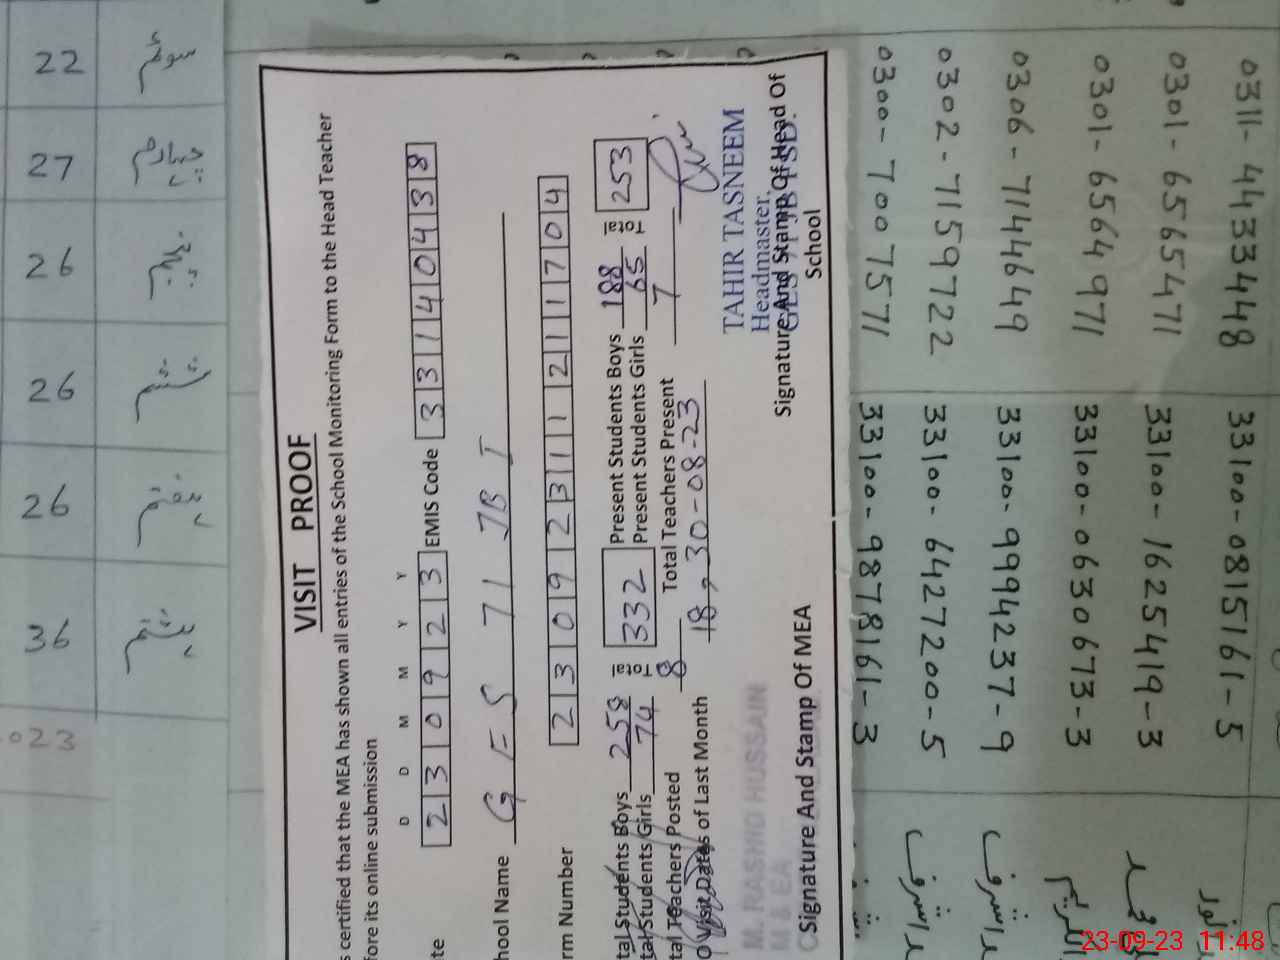 VISIT PROOF
certified that the MEA has shown all entries of the School Monitoring Form to the Head Teacher
fore its online submission
D D M M Y Y
te 2 3 0 9 2 3 EMIS Code 3 3 1 4 0 4 3 8
hool Name G E S 71 JB I
rm Number 2 3 0 9 2 3 1 1 2 1 1 7 0 4
tal Students Boys 258 332 Present Students Boys 188 253
tal Students Girls 74 Present Students Girls 65
tal Teachers Posted 8 Total Teachers Present 7
Visit Dates of Last Month 18, 30-08-23
M. RASHID HUSSAIN
M & EA
Signature And Stamp Of MEA
TAHIR TASNEEM
Headmaster,
Signature And Stamp Of Head Of
School
22
27
26
26
26
36
023
0300-7007571 33100-9878161-3
0302-7159722 33100-6427200-5
0306-7144649 33100-9994237-9
0301-6564971 33100-0630673-3
0301-6565471 33100-1625419-3
0311-4433448 33100-0815161-5
23-09-23 11:48